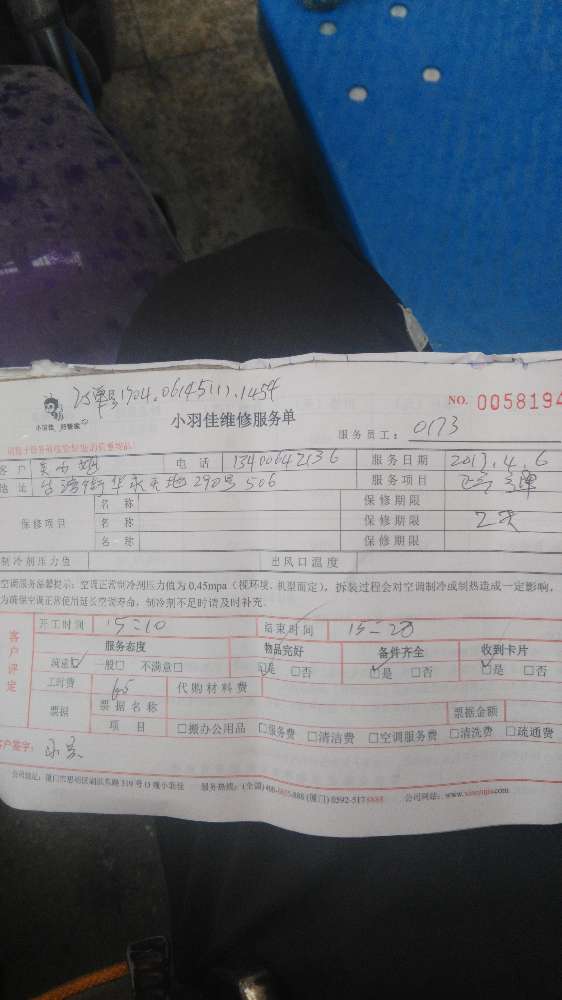 1704.06145111.1454
小羽佳 好管家
小羽佳维修服务单
NO. 0058194
服务员工: 0173
客户 电话 13400642136 服务日期 2017.4.6
地址 台湾街华永天地290号506 服务项目
保修项目
名称 保修期限
名称 保修期限
名称 保修期限
制冷剂压力值 出风口温度
空调服务温馨提示:空调正常制冷剂压力值为0.45mpa(视环境、机型而定),拆装过程会对空调制冷或制热造成一定影响,
为确保空调正常使用延长空调寿命,制冷剂不足时请及时补充.
客户评定
开工时间 15:10 结束时间 15:20
服务态度 物品完好 备件齐全 收到卡片
满意☑ 一般□ 不满意□ ☑是 □否 ☑是 □否 ☑是 □否
工时费 65 代购材料费
票据 票据名称 票据金额
项目 □搬办公用品 □服务费 □清洁费 □空调服务费 □清洗费 □疏通费
客户签字:
公司地址:厦门市思明区 319号 小羽佳 服务热线:(全国)400 (厦门) 0592-5178888 公司网站:www.xiaoyujia.com